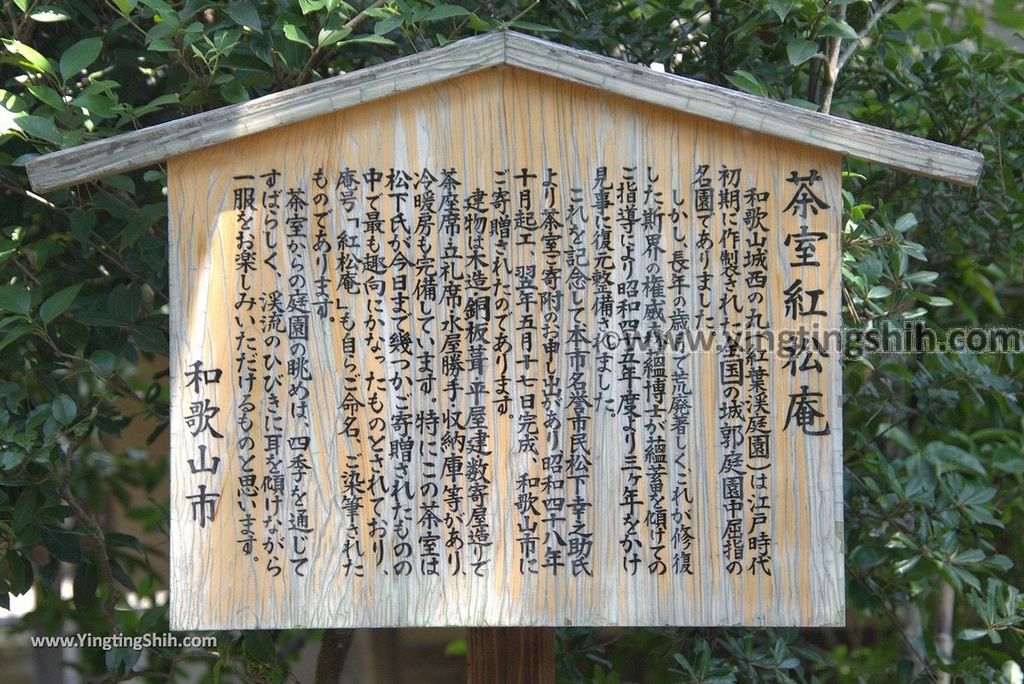 茶室紅松庵
和歌山城西の丸(紅葉渓庭園)は江戸時代
初期に作製され、全国の城郭庭園中屈指の
名園でありました。
しかし、長年の歳月で荒廃著しく、これが修復
した斯界の権威
ご指導により昭和四十五年度より三ヶ年をかけ
見事に復元整備されました。
これを記念して本市名誉市民松下幸之助氏
より茶室ご寄附のお申し出があり昭和四十八年
十月起工、翌年五月十七日完成、和歌山市に
ご寄贈されたのであります。
建物は木造銅板葺平屋建数寄屋造りで
茶座席・立礼席・水屋勝手・収納庫等があり、
冷暖房も完備しています。特にこの茶室は
松下氏が今日まで幾つかご寄贈されたものの
中で最も趣向にかなったものとされており、
庵号「紅松庵」も自らご命名、ご染筆された
ものであります。
茶室からの庭園の眺めは、四季を通じて
すばらしく、渓流のひびきに耳を傾けながら
一服をお楽しみいただけるものと思います。
和歌山市
©www.yingtingshih.com
www.YingtingShih.com